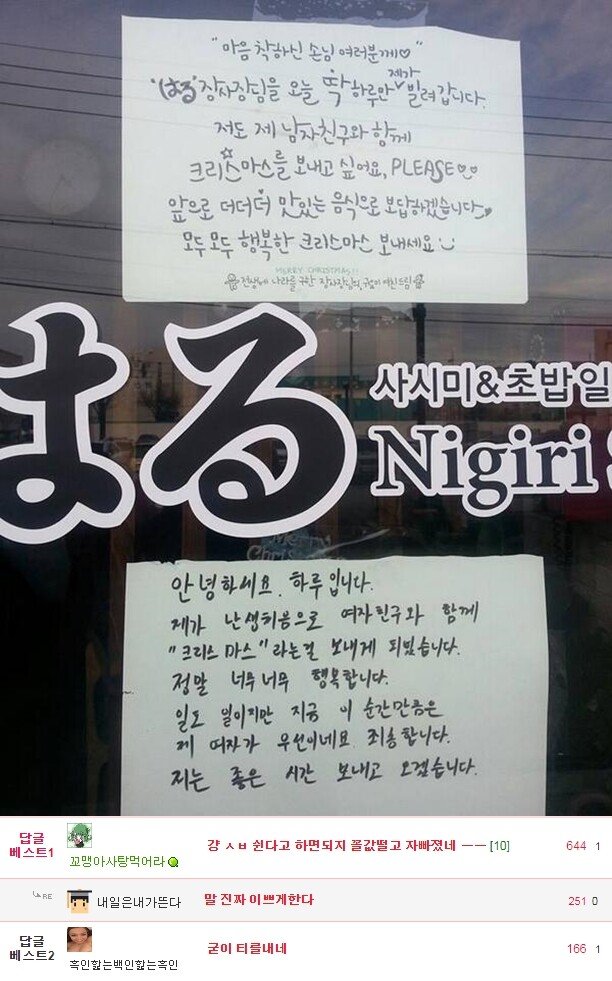 "마음 착하신 손님 여러분께♡"
'はる' 장사장님을 오늘 딱 하루만 제가 빌려갑니다.
저도 제 남자친구와 함께
크리스마스를 보내고 싶어요, PLEASE♡♡
앞으로 더더더 맛있는 음식으로 보답하겠습니다
모두모두 행복한 크리스마스 보내세요
MERRY CHRISTMAS!!
전생에 나라를 구한 장사장님의 여친드림
はる
사시미&초밥일
Nigiri
Merry
안녕하세요. 하루입니다.
제가 난생처음으로 여자친구와 함께
"크리스마스"라는걸 보내게 되었습니다.
정말 너무너무 행복합니다.
일도 일이지만 지금 이 순간만큼은
제 여자가 우선이네요 죄송합니다.
저는 좋은 시간 보내고 오겠습니다.
답글 베스트1 꼬맹아사탕먹어라 걍 ㅅㅂ 쉰다고 하면되지 꼴값떨고 자빠졌네 ㅡㅡ [10] 644 1
RE 내일은내가뜬다 말 진짜 이쁘게한다 251 0
답글 베스트2 흑인핥는백인핥는흑인 굳이 티를내네 166 1